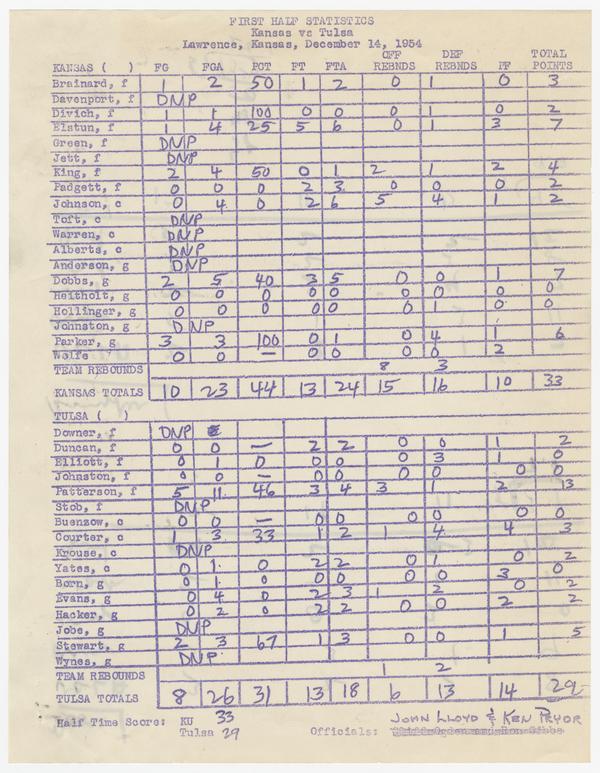 FIRST HALF STATISTICS
Kansas vs Tulsa
Lawrence, Kansas, December 14, 1954
KANSAS ( ) FG FGA PCT FT FTA OFF REBNDS DEF REBNDS PF TOTAL POINTS
Brainard, f 1 2 50 1 2 0 1 0 3
Davenport, f DNP
Divich, f 1 1 100 0 0 0 1 0 2
Elstun, f 1 4 25 5 6 0 1 3 7
Green, f DNP
Jett, f DNP
King, f 2 4 50 0 1 2 1 2 4
Padgett, f 0 0 0 2 3 0 0 0 2
Johnson, c 0 4 0 2 6 5 4 1 2
Toft, c DNP
Warren, c DNP
Alberts, c DNP
Anderson, g DNP
Dobbs, g 2 5 40 3 5 0 0 1 7
Heitholt, g 0 0 0 0 0 0 0 0 0
Hollinger, g 0 0 0 0 0 0 1 0 0
Johnston, g DNP
Parker, g 3 3 100 0 1 0 4 1 6
Wolfe 0 0 — 0 0 0 0 2
TEAM REBOUNDS 8 3
KANSAS TOTALS 10 23 44 13 24 15 16 10 33
TULSA ( )
Downer, f DNP
Duncan, f 0 0 — 2 2 0 0 1 2
Elliott, f 0 1 0 0 0 0 3 1 0
Johnston, f 0 0 — 0 0 0 0 0 0
Patterson, f 5 11 46 3 4 3 1 2 13
Stob, f DNP
Buenzow, c 0 0 — 0 0 0 0 0 0
Courter, c 1 3 33 1 2 1 4 4 3
Krouse, c DNP
Yates, c 0 1 0 2 2 0 1 0 2
Born, g 0 1 0 0 0 0 0 3 0
Evans, g 0 4 0 2 3 1 2 0 2
Hacker, g 0 2 0 2 2 0 0 2 2
Jobe, g DNP
Stewart, g 2 3 67 1 3 0 0 1 5
Wynes, g DNP
TEAM REBOUNDS 1 2
TULSA TOTALS 8 26 31 13 18 6 13 14 29
Half Time Score: KU 33
Tulsa 29 Officials: JOHN LLOYD & KEN PRYOR